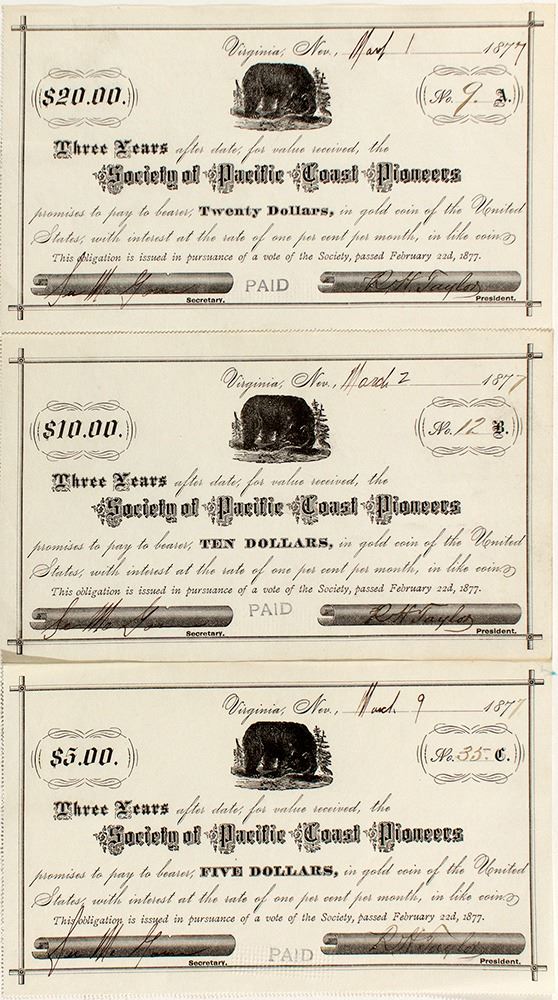 Virginia, Nev., Mar 1 1877
$20.00.
No. 9 A.
Three Years after date, for value received, the
Society of Pacific Coast Pioneers
promises to pay to bearer, Twenty Dollars, in gold coin of the United
States, with interest at the rate of one per cent per month, in like coin
This obligation is issued in pursuance of a vote of the Society, passed February 22d, 1877.
PAID
R. H. Taylor
Secretary.
President.
Virginia, Nev., March 2 1877
$10.00.
No. 12 B.
Three Years after date, for value received, the
Society of Pacific Coast Pioneers
promises to pay to bearer, TEN DOLLARS, in gold coin of the United
States, with interest at the rate of one per cent per month, in like coin
This obligation is issued in pursuance of a vote of the Society, passed February 22d, 1877.
PAID
R. H. Taylor
Secretary.
President.
Virginia, Nev., March 9 1877
$5.00.
No. 35 C.
Three Years after date, for value received, the
Society of Pacific Coast Pioneers
promises to pay to bearer, FIVE DOLLARS, in gold coin of the United
States, with interest at the rate of one per cent per month, in like coin
This obligation is issued in pursuance of a vote of the Society, passed February 22d, 1877.
PAID
R. H. Taylor
Secretary.
President.